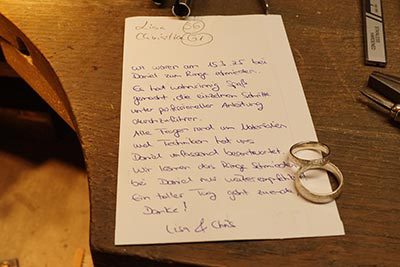 Lisa 56
Christian 61
Wir waren am 15.3.25 bei
Daniel zum Ringe schmieden.
Es hat wahnsinnig Spaß
gemacht, die einzelnen Schritte
unter professioneller Anleitung
durchzuführen.
Alle Fragen rund um Materialien
und Techniken hat uns
Daniel umfassend beantwortet.
Wir können das Ringe Schmieden
bei Daniel nur weiterempfehlen.
Ein toller Tag geht zuende.
Danke!
Lisa & Chris